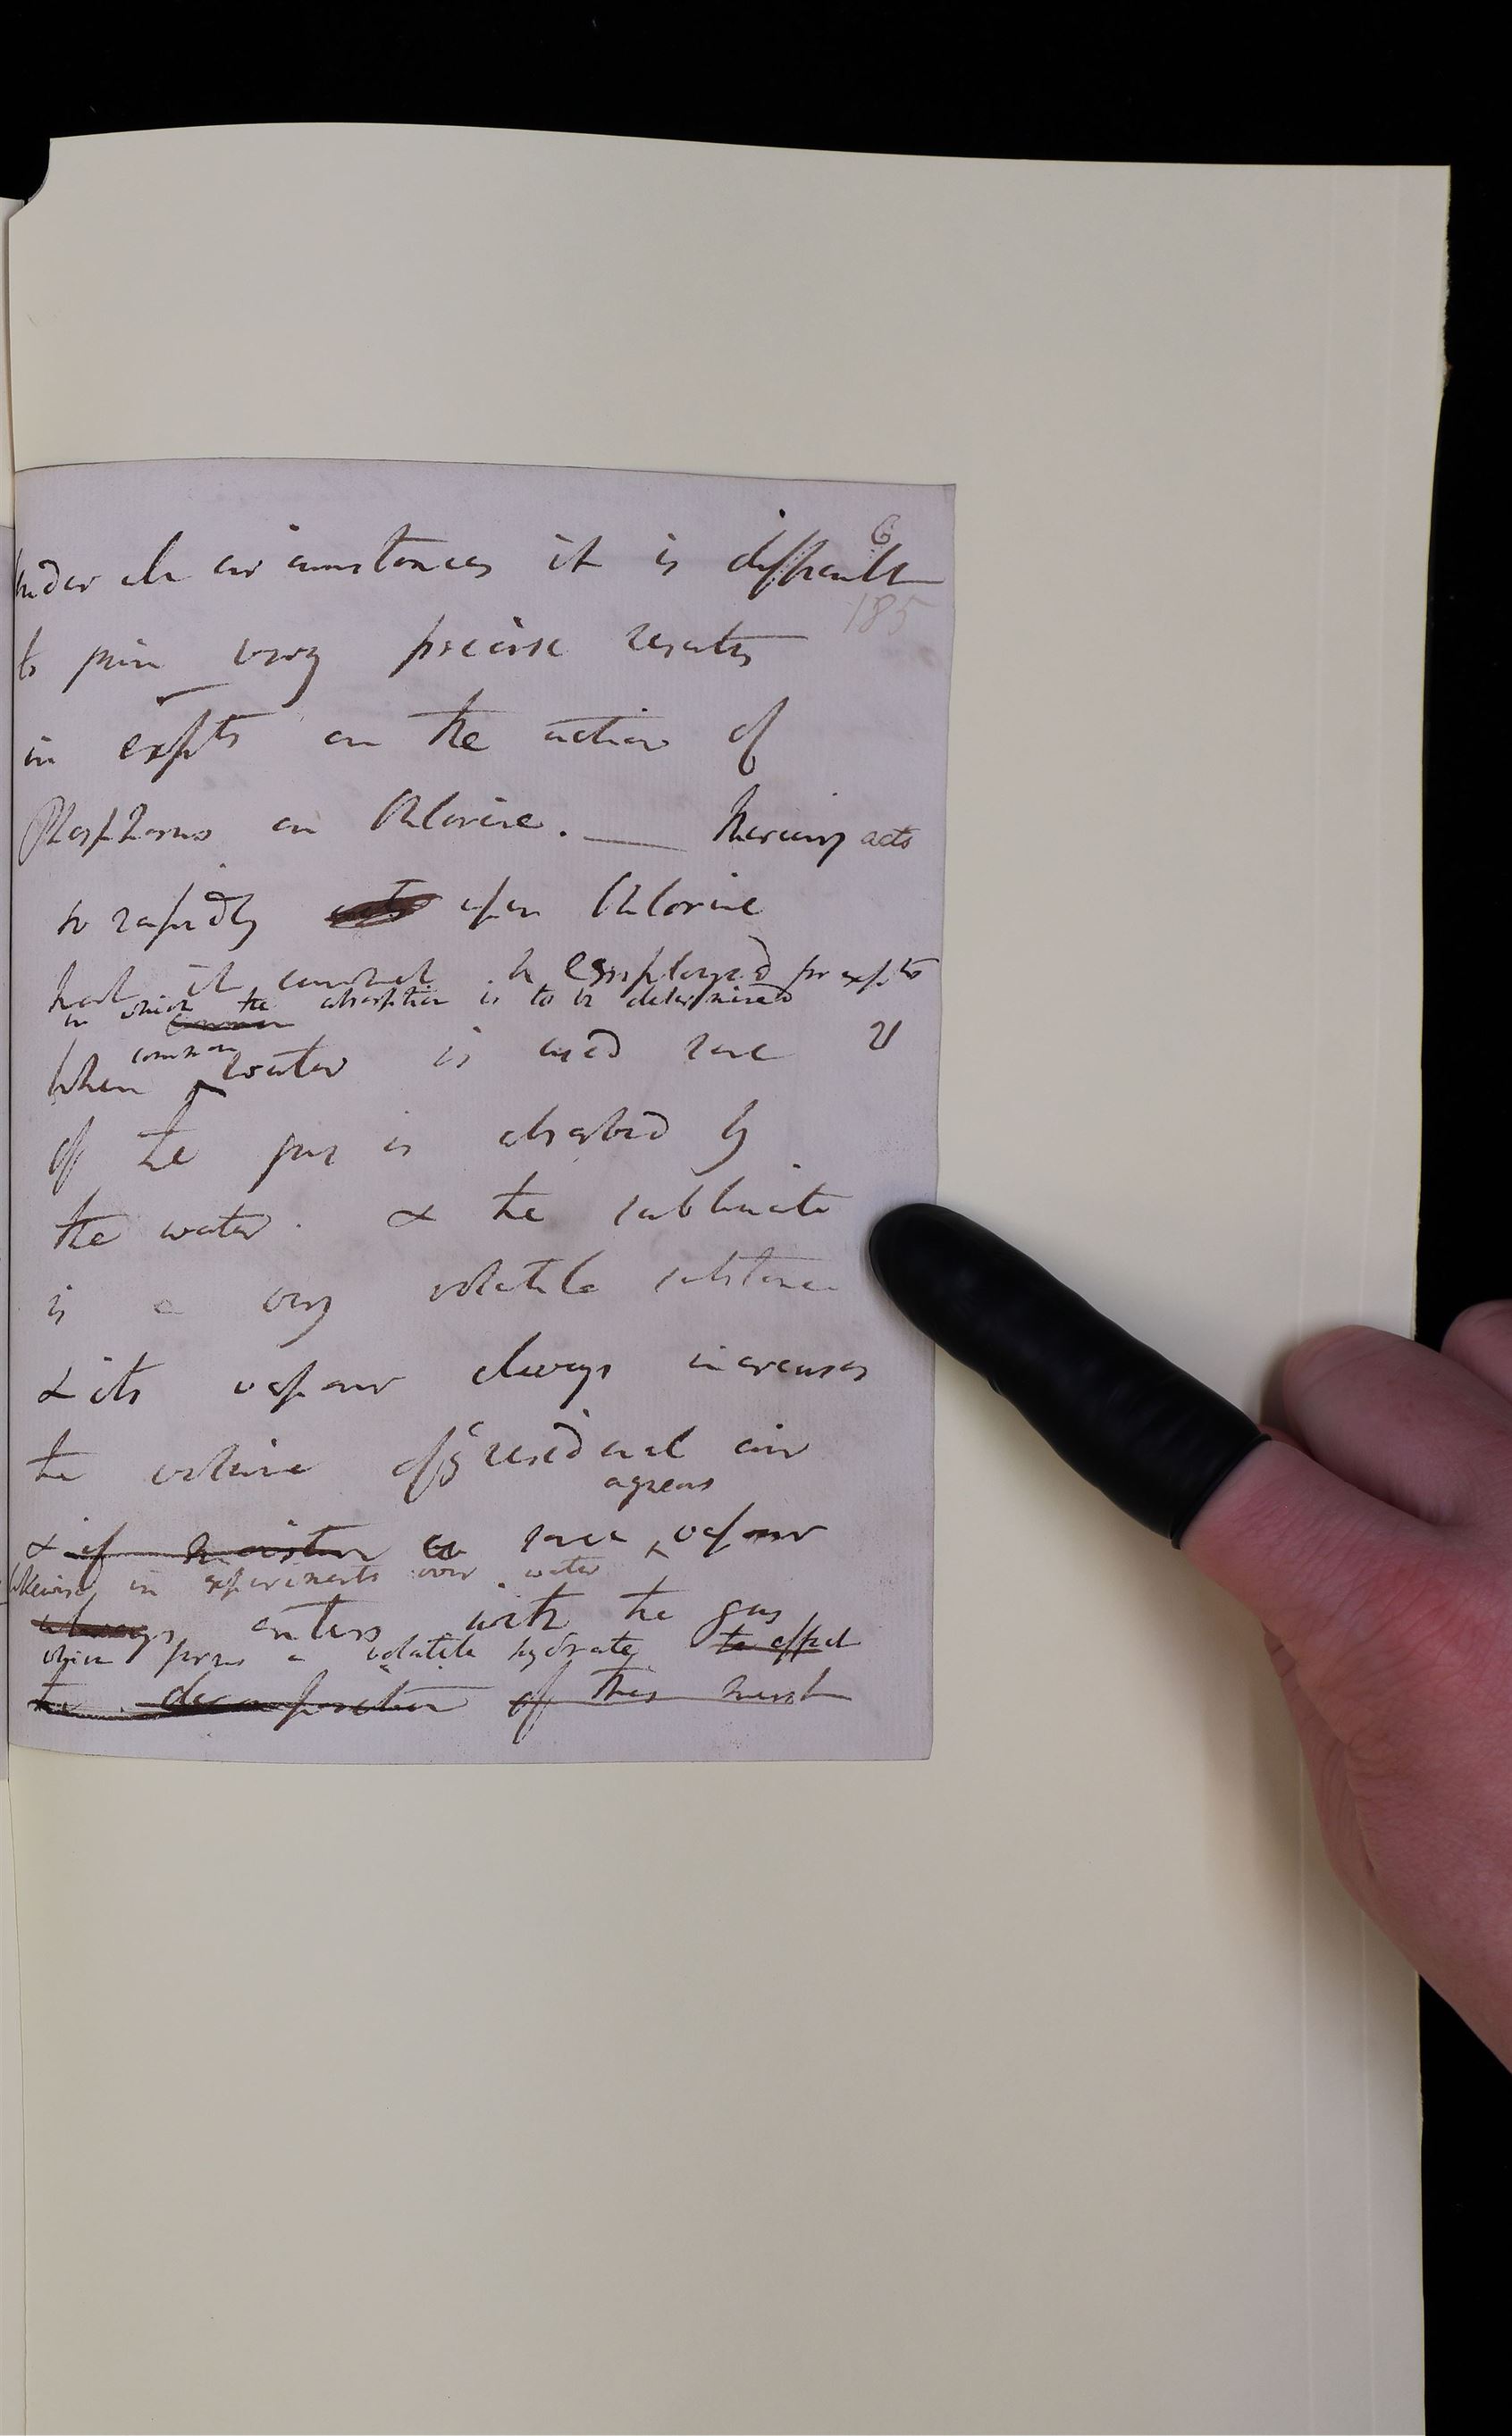 6
Under all circumstances it is difficult
185
to gain very precise results
in expts on the action of
Phosphorus on Chlorine. — Mercury acts
so rapidly acts upon Chlorine
that it cannot be employed for expts
in which the absorption is to be determined
common
When water is used some
of the gas is absorbed by
the water. & the sublimate
is a very volatile substance
& its vapour always increases
the volume of residual air
aqueous
& if moisture as some vapour
likewise in experiments over water
always enters with the gas
which forms a volatile hydrate to effect
the decomposition of this must